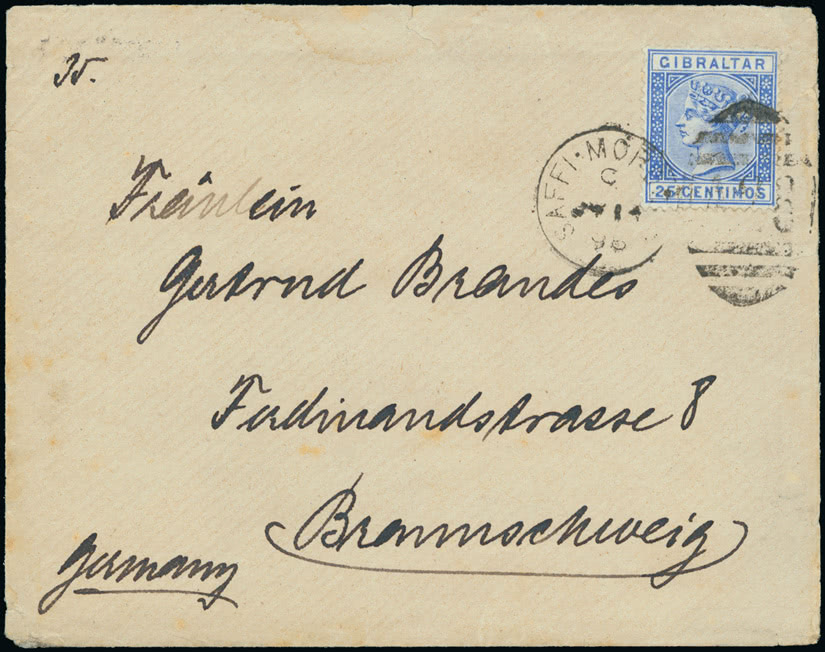 GIBRALTAR
25 CENTIMOS
SAFFI·MOR
C
14
96
Fräulein
Gertrud Brandes
Ferdinandstrasse 8
Braunschweig
Germany